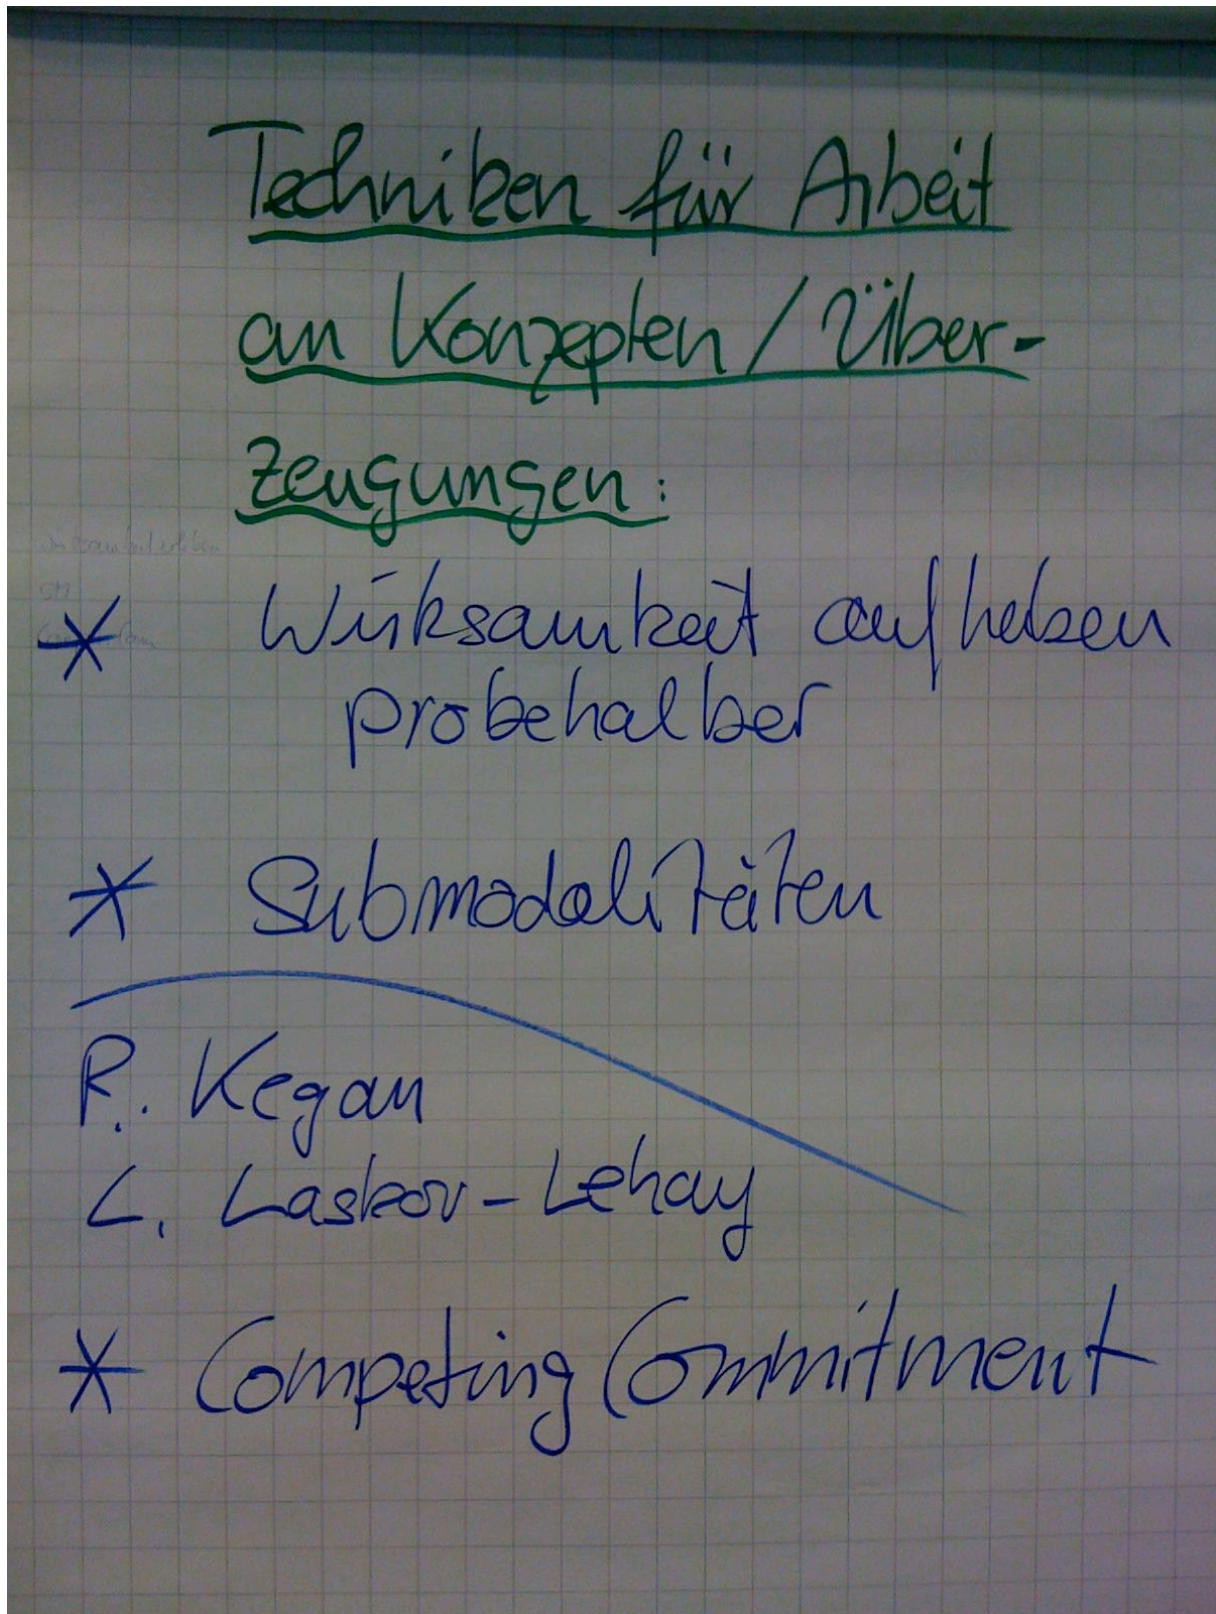 Techniken für Arbeit
an Konzepten / Über-
zeugungen:
* Wirksamkeit aufheben
probehalber
* Submodalitäten
R. Kegan
L. Laskov - Lehay
* Competing Commitment